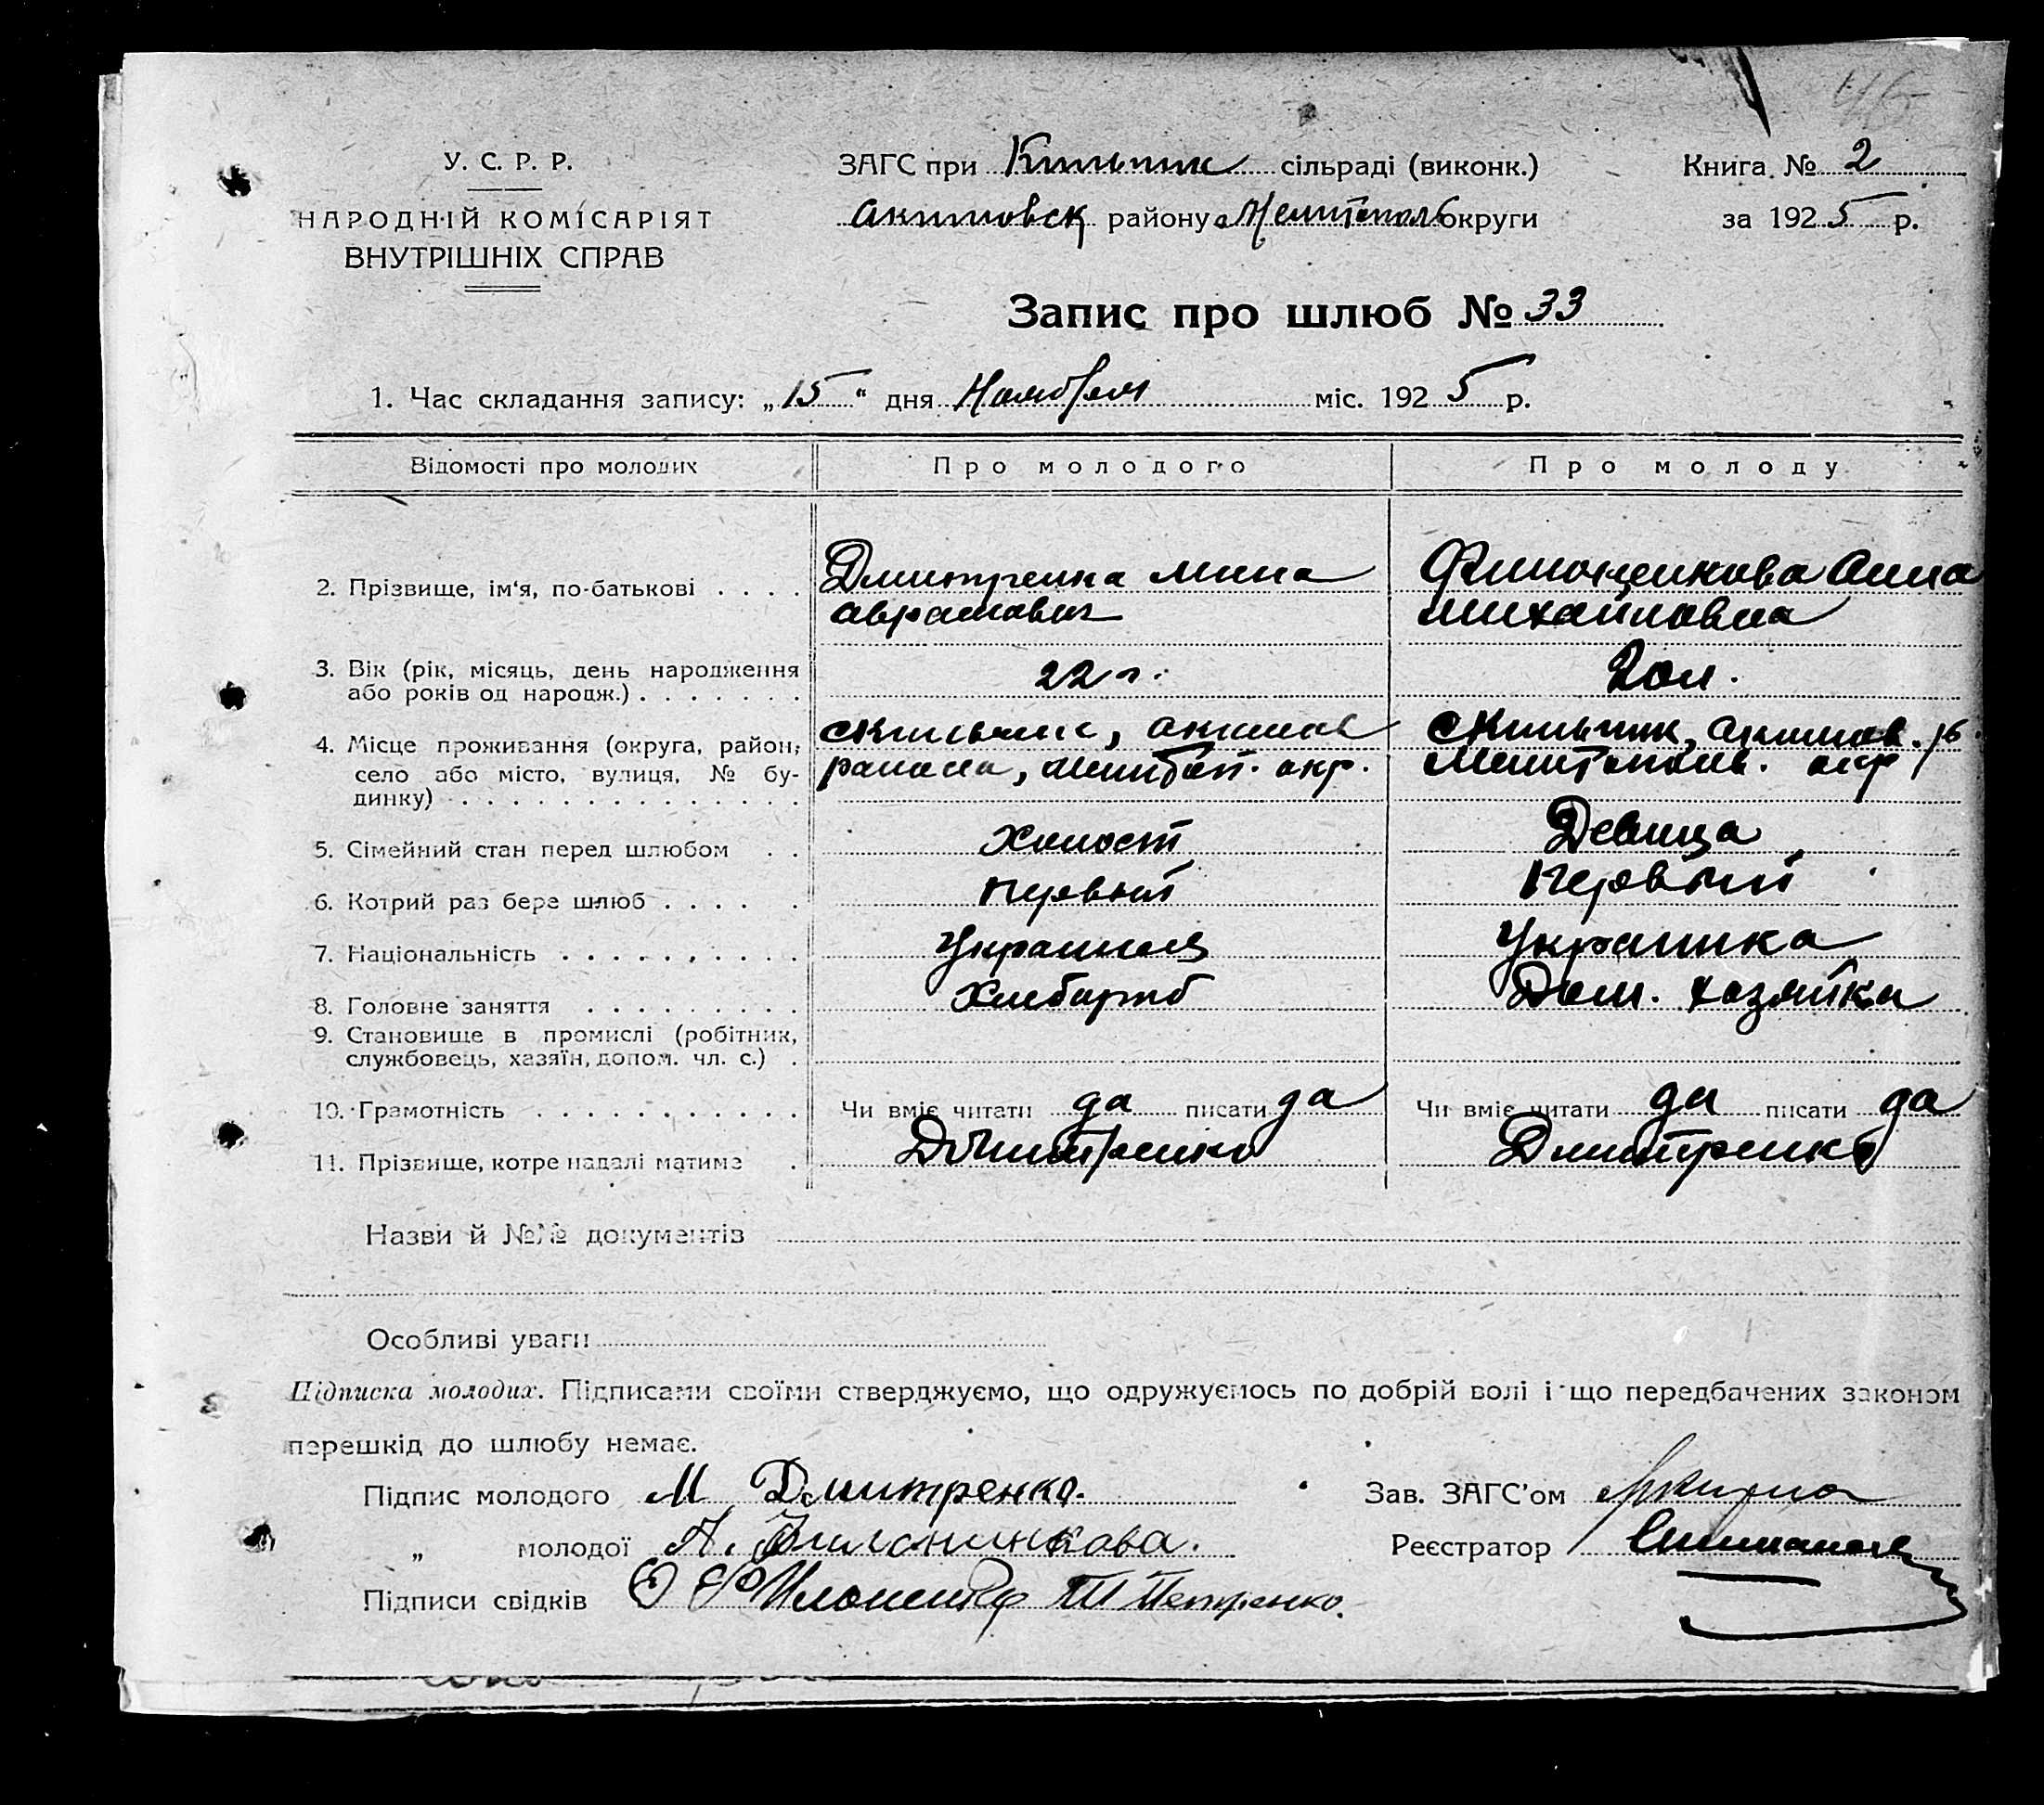 46
У. С. Р. Р.
НАРОДНІЙ КОМІСАРІЯТ
ВНУТРІШНІХ СПРАВ
ЗАГС при Кильчик сільраді (виконк.)
Акимовск району Мелитополь округи
Книга № 2
за 1925 р.
Запис про шлюб № 33
1. Час складання запису: „15“ дня Ноября міс. 1925 р.
Відомості про молодих Про молодого Про молоду
2. Прізвище, ім‘я, по-батькові . . . . Дмитренко Мина Филоненкова Анна
Аврамович Михайловна
3. Вік (рік, місяць, день народження
або років од народж.) . . . . . . . 22 г. 20 л.
4. Місце проживання (округа, район,
село або місто, вулиця, № бу-
динку) . . . . . . . . . . . . . .
с Кильчик, Акимов
района, окр.
с Кильчик, Акимов. р
Мелитополь. окр
5. Сімейний стан перед шлюбом . . Холост Девица
6. Котрий раз бере шлюб . . . . . Первый Первый
7. Національність . . . . . . . . . . Украинец Украинка
8. Головне заняття . . . . . . . . . Хлебороб Дом. хозяйка
9. Становище в промислі (робітник,
службовець, хазяїн, допом. чл. с.) .
10. Грамотність . . . . . . . . . . . Чи вміє читати да писати да Чи вміє читати да писати да
11. Прізвище, котре надалі матиме . Дмитренко Дмитренко
Назви й №№ документів
Особливі уваги
Підписка молодих. Підписами своїми стверджуємо, що одружуємось по добрій волі і що передбачених законом
перешкід до шлюбу немає.
Підпис молодого М Дмитренко. Зав. ЗАГС’ом
„ молодої А. Филонинкова. Реєстратор
Підписи свідків Т Петренко.